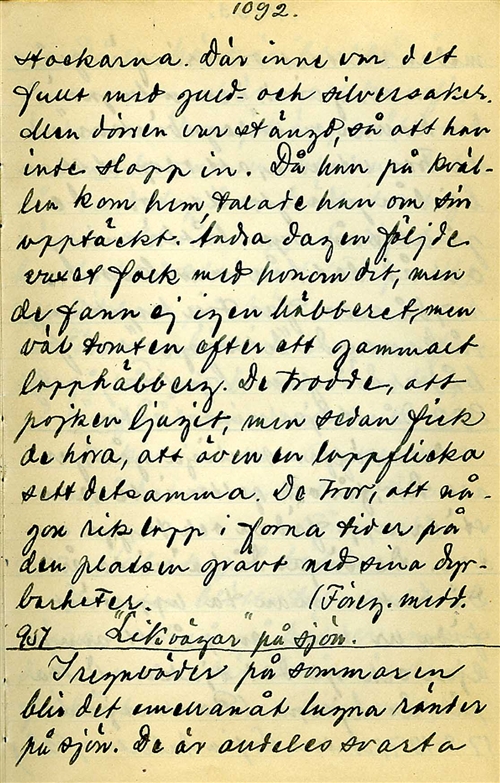 1092.
stockarna. Där inne var det
fullt med guld- och silversaker.
Men dörren var stängd, så att han
inte slapp in. Då han på kväl-
len kom hem, talade han om sin
upptäckt. Andra dagen följde
vuxet folk med honom dit, men
de fann ej igen häbberet, men
väl tomten efter ett gammalt
lapphäbberg. De trodde, att
pojken ljugit, men sedan fick
de höra, att även en lappflicka
sett detsamma. De tror, att nå-
gon rik lapp i forna tider på
den platsen grävt ned sina dyr-
barheter. (Föreg. medd.
957 "Likvägar" på sjön.
I regnväder på sommaren
blir det emellanåt lugna ränder
på sjön. De är alldeles svarta